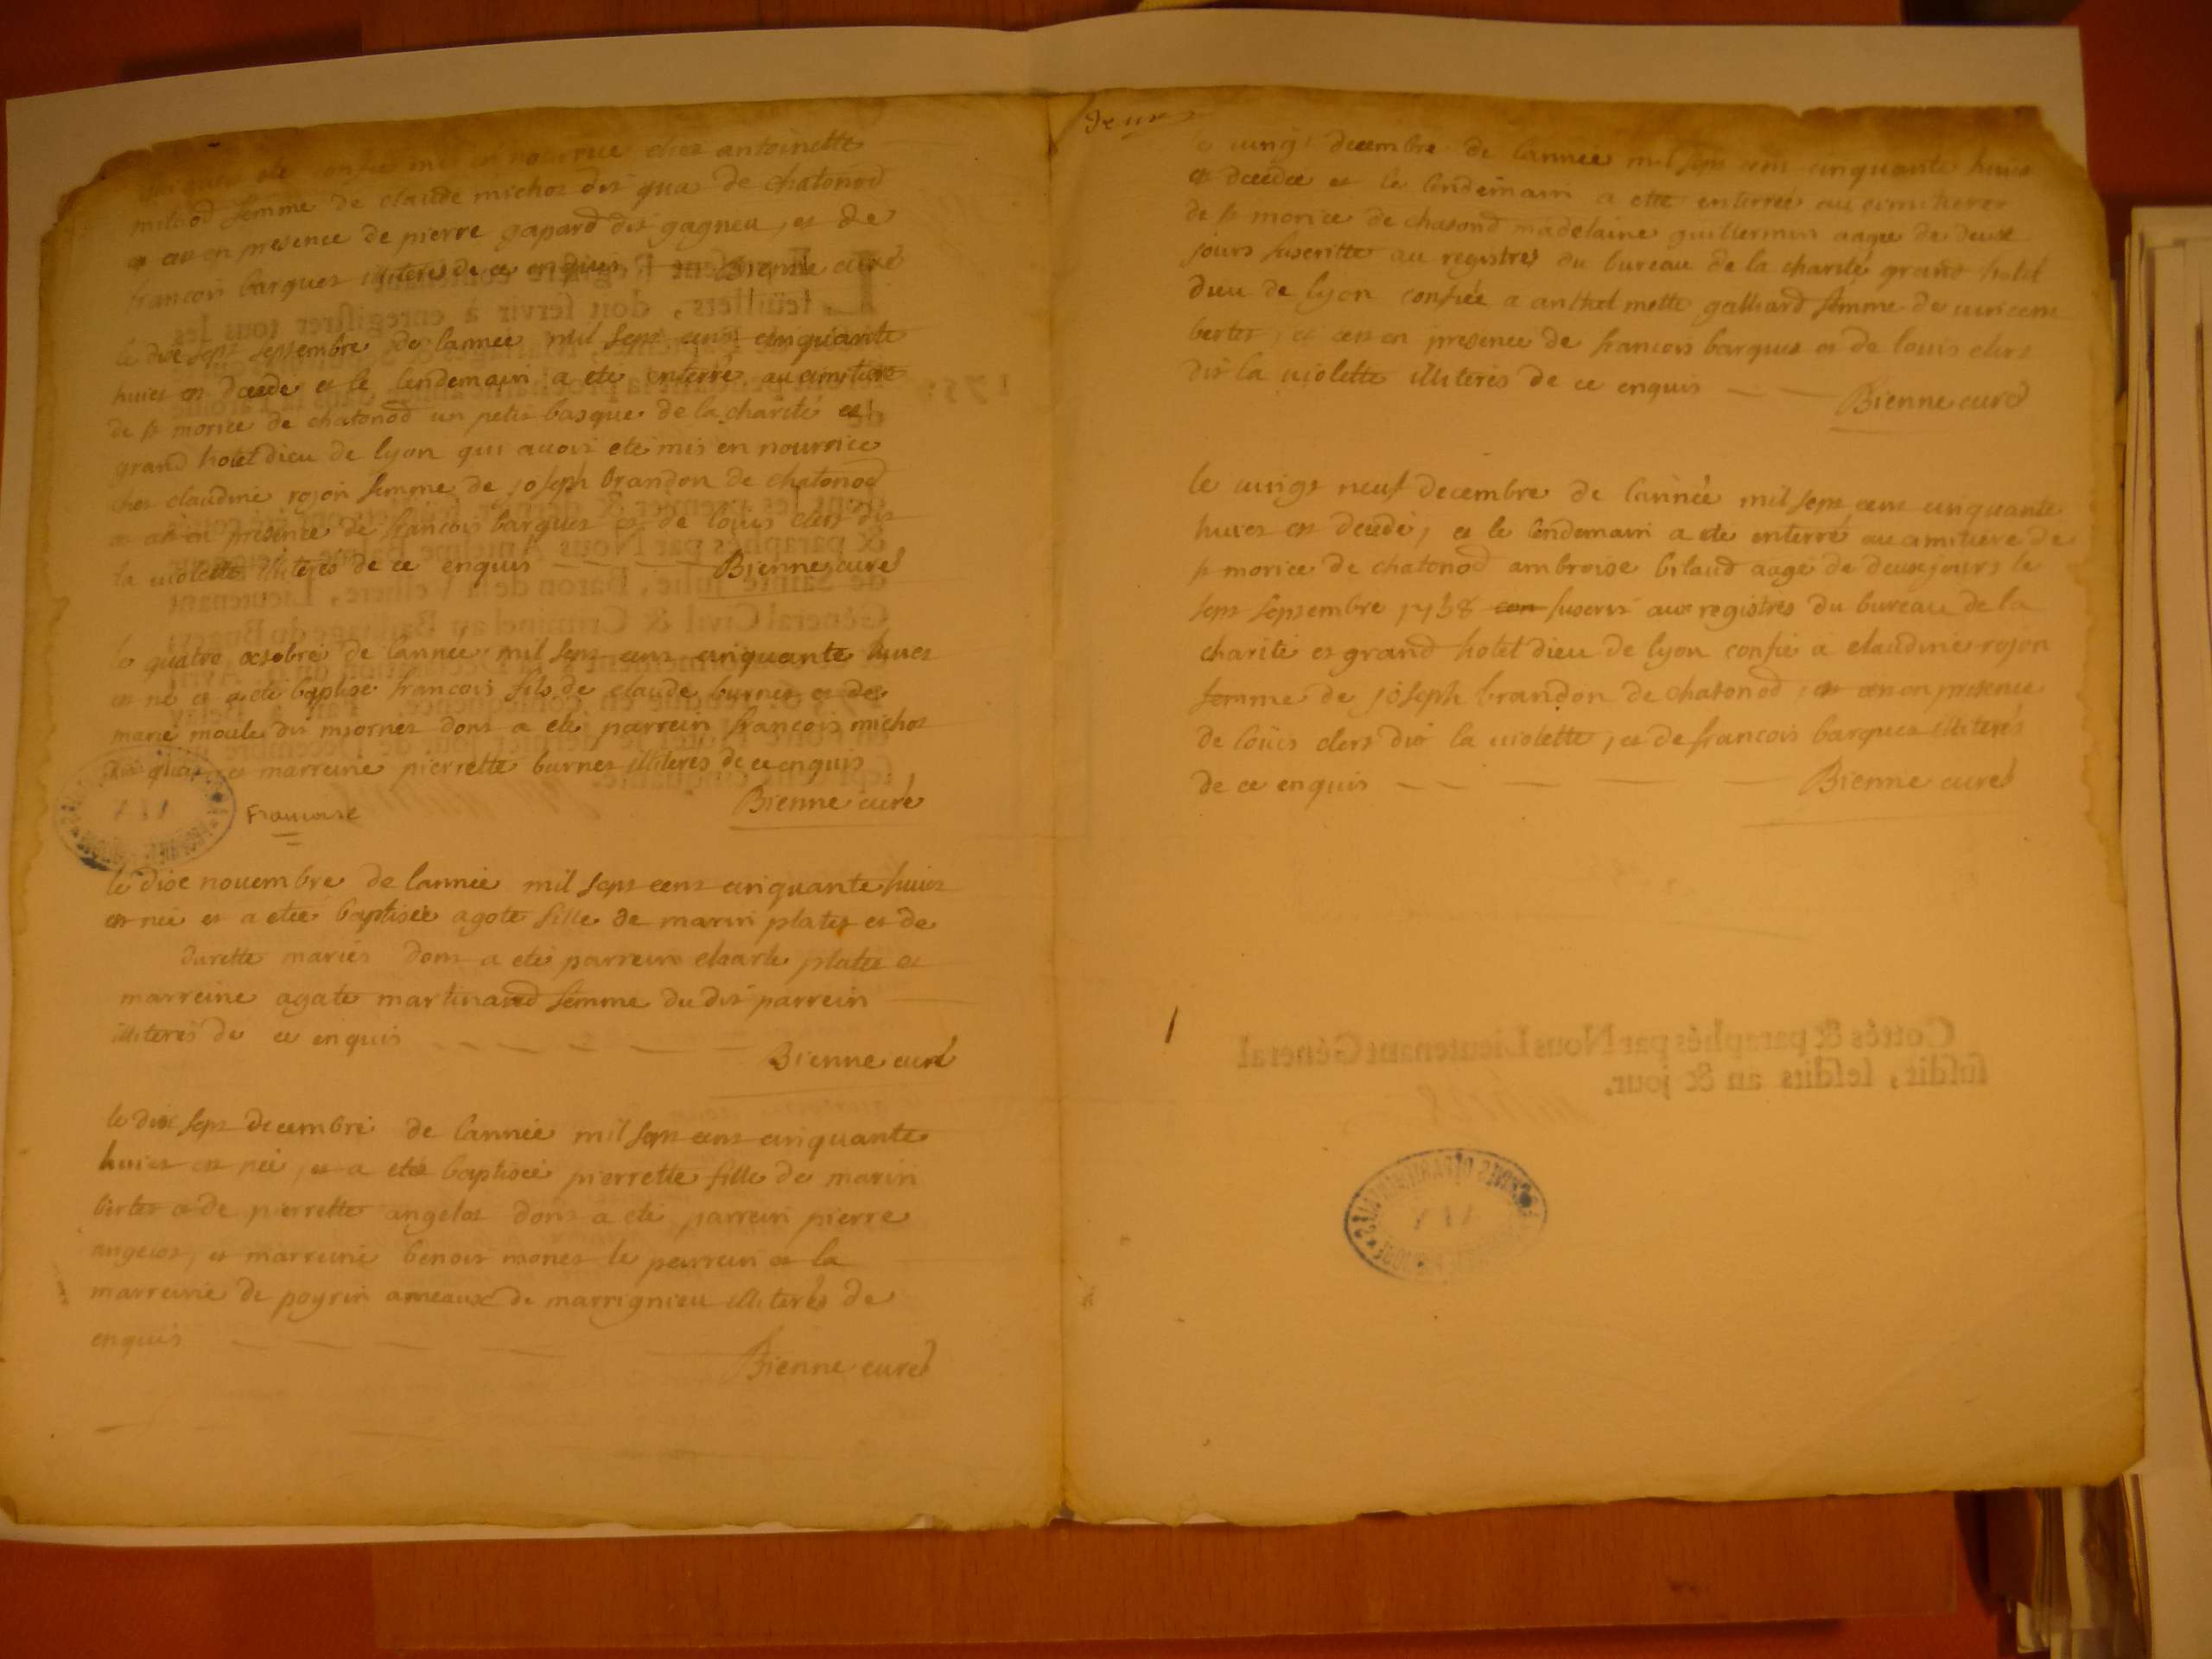 ete confié mis en nourrice chez antoinette
milliod femme de claude michoz dit quaz de chatonod
et ce en presence de pierre gapard dit gagneu, et de
francois barquez illiteres de ce enquis Bienne curé
le dix sept septembre de lannee mil sept cens cinquante
huict est decede et le lendemain a ete enterré au cimitiere
de st morice de chatonod un petit basque de la charité et
grand hotel dieu de lyon qui avoit eté mis en nourrice
ches claudine rojon femme de joseph brandon de chatonod
et ce en presence de francois barquez et de louis clerc dit
la violette illiteres de ce enquis Bienne curé
le quatre octobre de lannée mil sept cens cinquante huict
est né et a eté baptisé francois fils de claude burnet et de
marie moule dit miornet dont a eté parrein francois michoz
dit quaz et marreine pierrette burnet illiteres de ce enquis
Bienne curé
Francoise
le dix novembre de lannée mil sept cens cinquante huict
est née et a eteé baptisée agote fille de marin platez et de
durette mariés dont a eté parrein charle platez et
marreine agate martinand femme du dit parrein
illiteres de ce enquis
Bienne curé
le dix sept decembre de lannée mil sept cens cinquante
huict est née, et a eteé baptisée pierrette fille de marin
bertet et de pierrette angelot dont a eté parrein pierre
angelot, et marreine benoit monet le parrein et la
marreine de poyrin ameaux de marrignieu illiterés de
enquis
Bienne curé
Deux
le vingt decembre de lannee mil sept cens cinquante huict
est decedée et le lendemain a eteé enterreé au cimitierre
de st morice de chatonod madelaine guillermin aagee de deux
jours suscritte au registres du bureau de la charité grand hotel
dieu de lyon confiée a anthelmette galliard femme de vincent
bertet, et ce en presence de francois barquez et de louis clerc
dit la violette illiterés de ce enquis
Bienne curé
le vingt neuf decembre de lannée mil sept cens cinquante
huict est decedé, et le lendemain a eté enterré au cimitiere de
st morice de chatonod ambroise bilaud aagé de deux jours le
sept septembre 1758 suscrit aux registres du bureau de la
charité et grand hotel dieu de lyon confié a claudine rojon
femme de joseph brandon de chatonod, et ce en presence
de loüis clerc dit la violette, et de francois barquez illiterés
de ce enquis Bienne curé
Cottés & paraphés par Nous Lieutenant Général
susdit, lesdits an & jour.